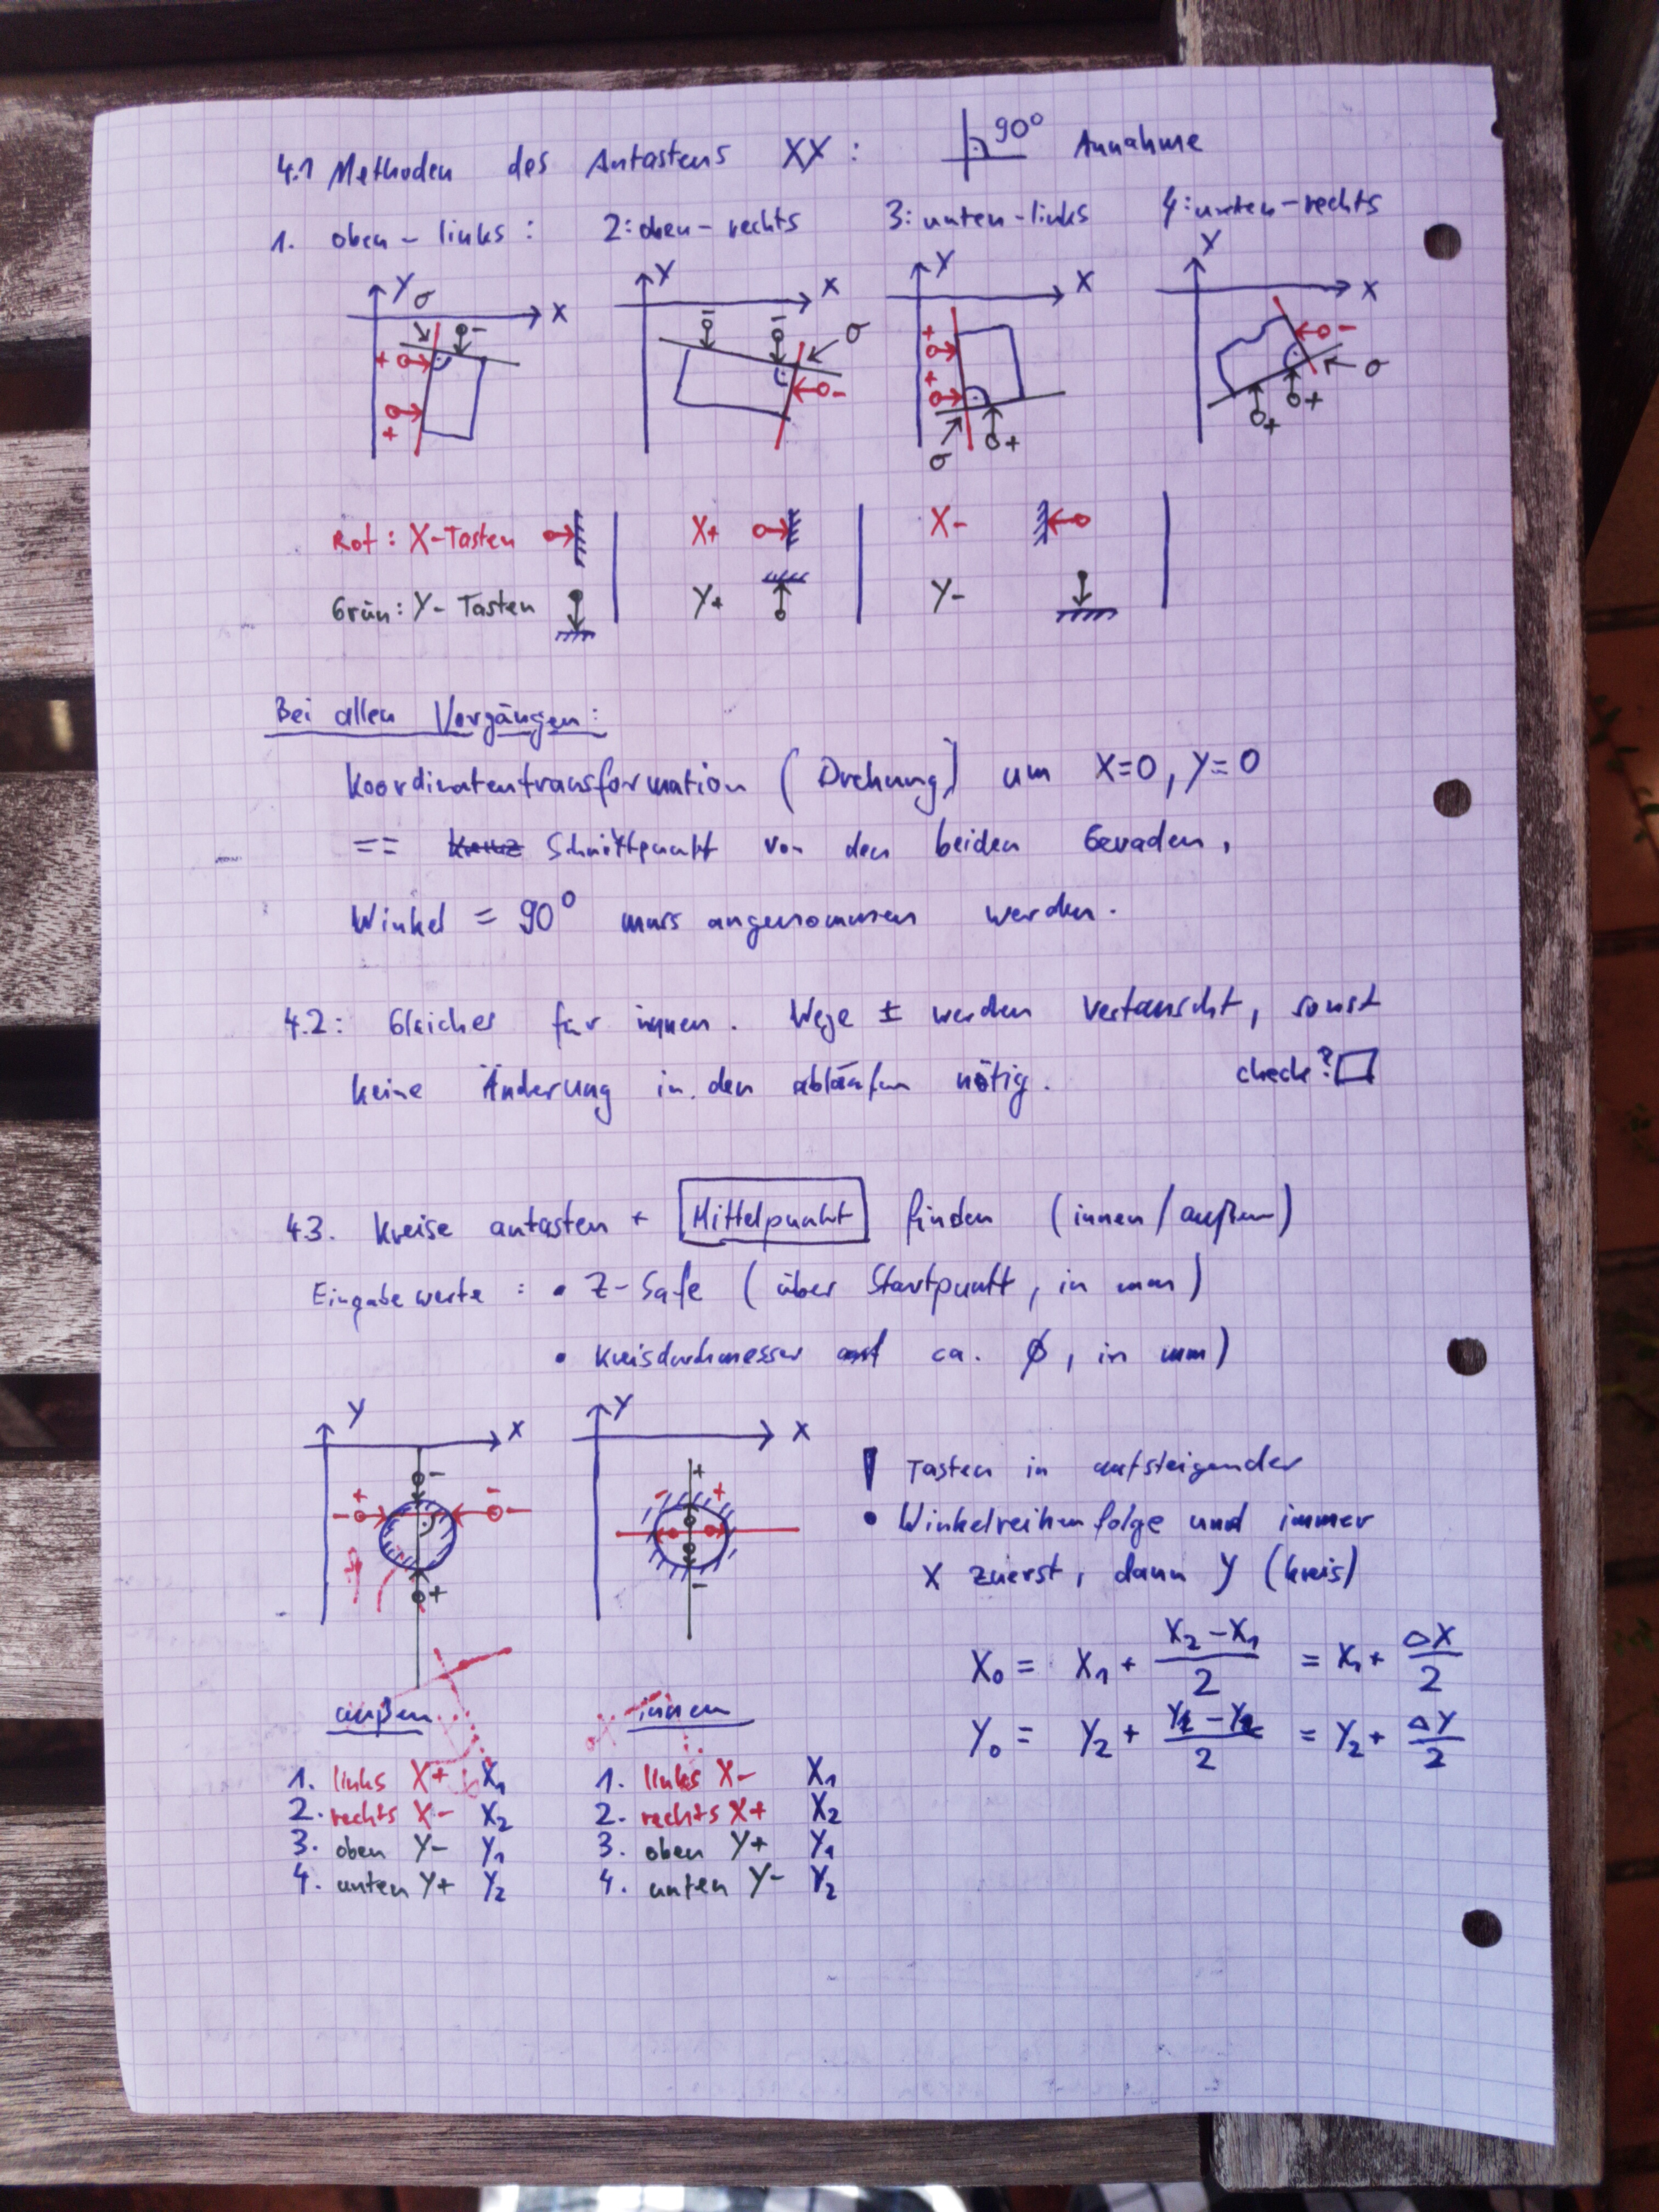 4.1 Methoden des Antastens XX : 90° Annahme
1. oben - links : 2: oben - rechts 3: unten - links 4: unten - rechts
Y X Y X Y X Y X
σ - + + - - σ - + + σ + - σ + +
Rot : X-Tasten X+ X-
Grün : Y- Tasten Y+ Y-
Bei allen Vorgängen :
Koordinatentransformation ( Drehung ) um X=0, Y=0
== Schnittpunkt von den beiden Geraden ,
Winkel = 90° muss angenommen werden .
4.2 : Gleiches für innen . Wege ± werden vertauscht , sonst
keine Änderung in den abläufen nötig . check? 
4.3. Kreise antasten + Mittelpunkt finden ( innen / außen )
Eingabewerte : • Z-Safe ( über Startpunkt , in mm )
• Kreisdurchmesser ca. Ø , in mm )
Y X Y X
+ - - + - + + -
! Tasten in aufsteigender
• Winkelreihenfolge und immer
X zuerst , dann Y ( Kreis )
X₀ = X₁ + (X₂ - X₁)/2 = X₁ + ΔX/2
Y₀ = Y₂ + (Y₁ - Y₂)/2 = Y₂ + ΔY/2
außen innen
1. links X+ X₁ 1. links X- X₁
2. rechts X- X₂ 2. rechts X+ X₂
3. oben Y- Y₁ 3. oben Y+ Y₁
4. unten Y+ Y₂ 4. unten Y- Y₂